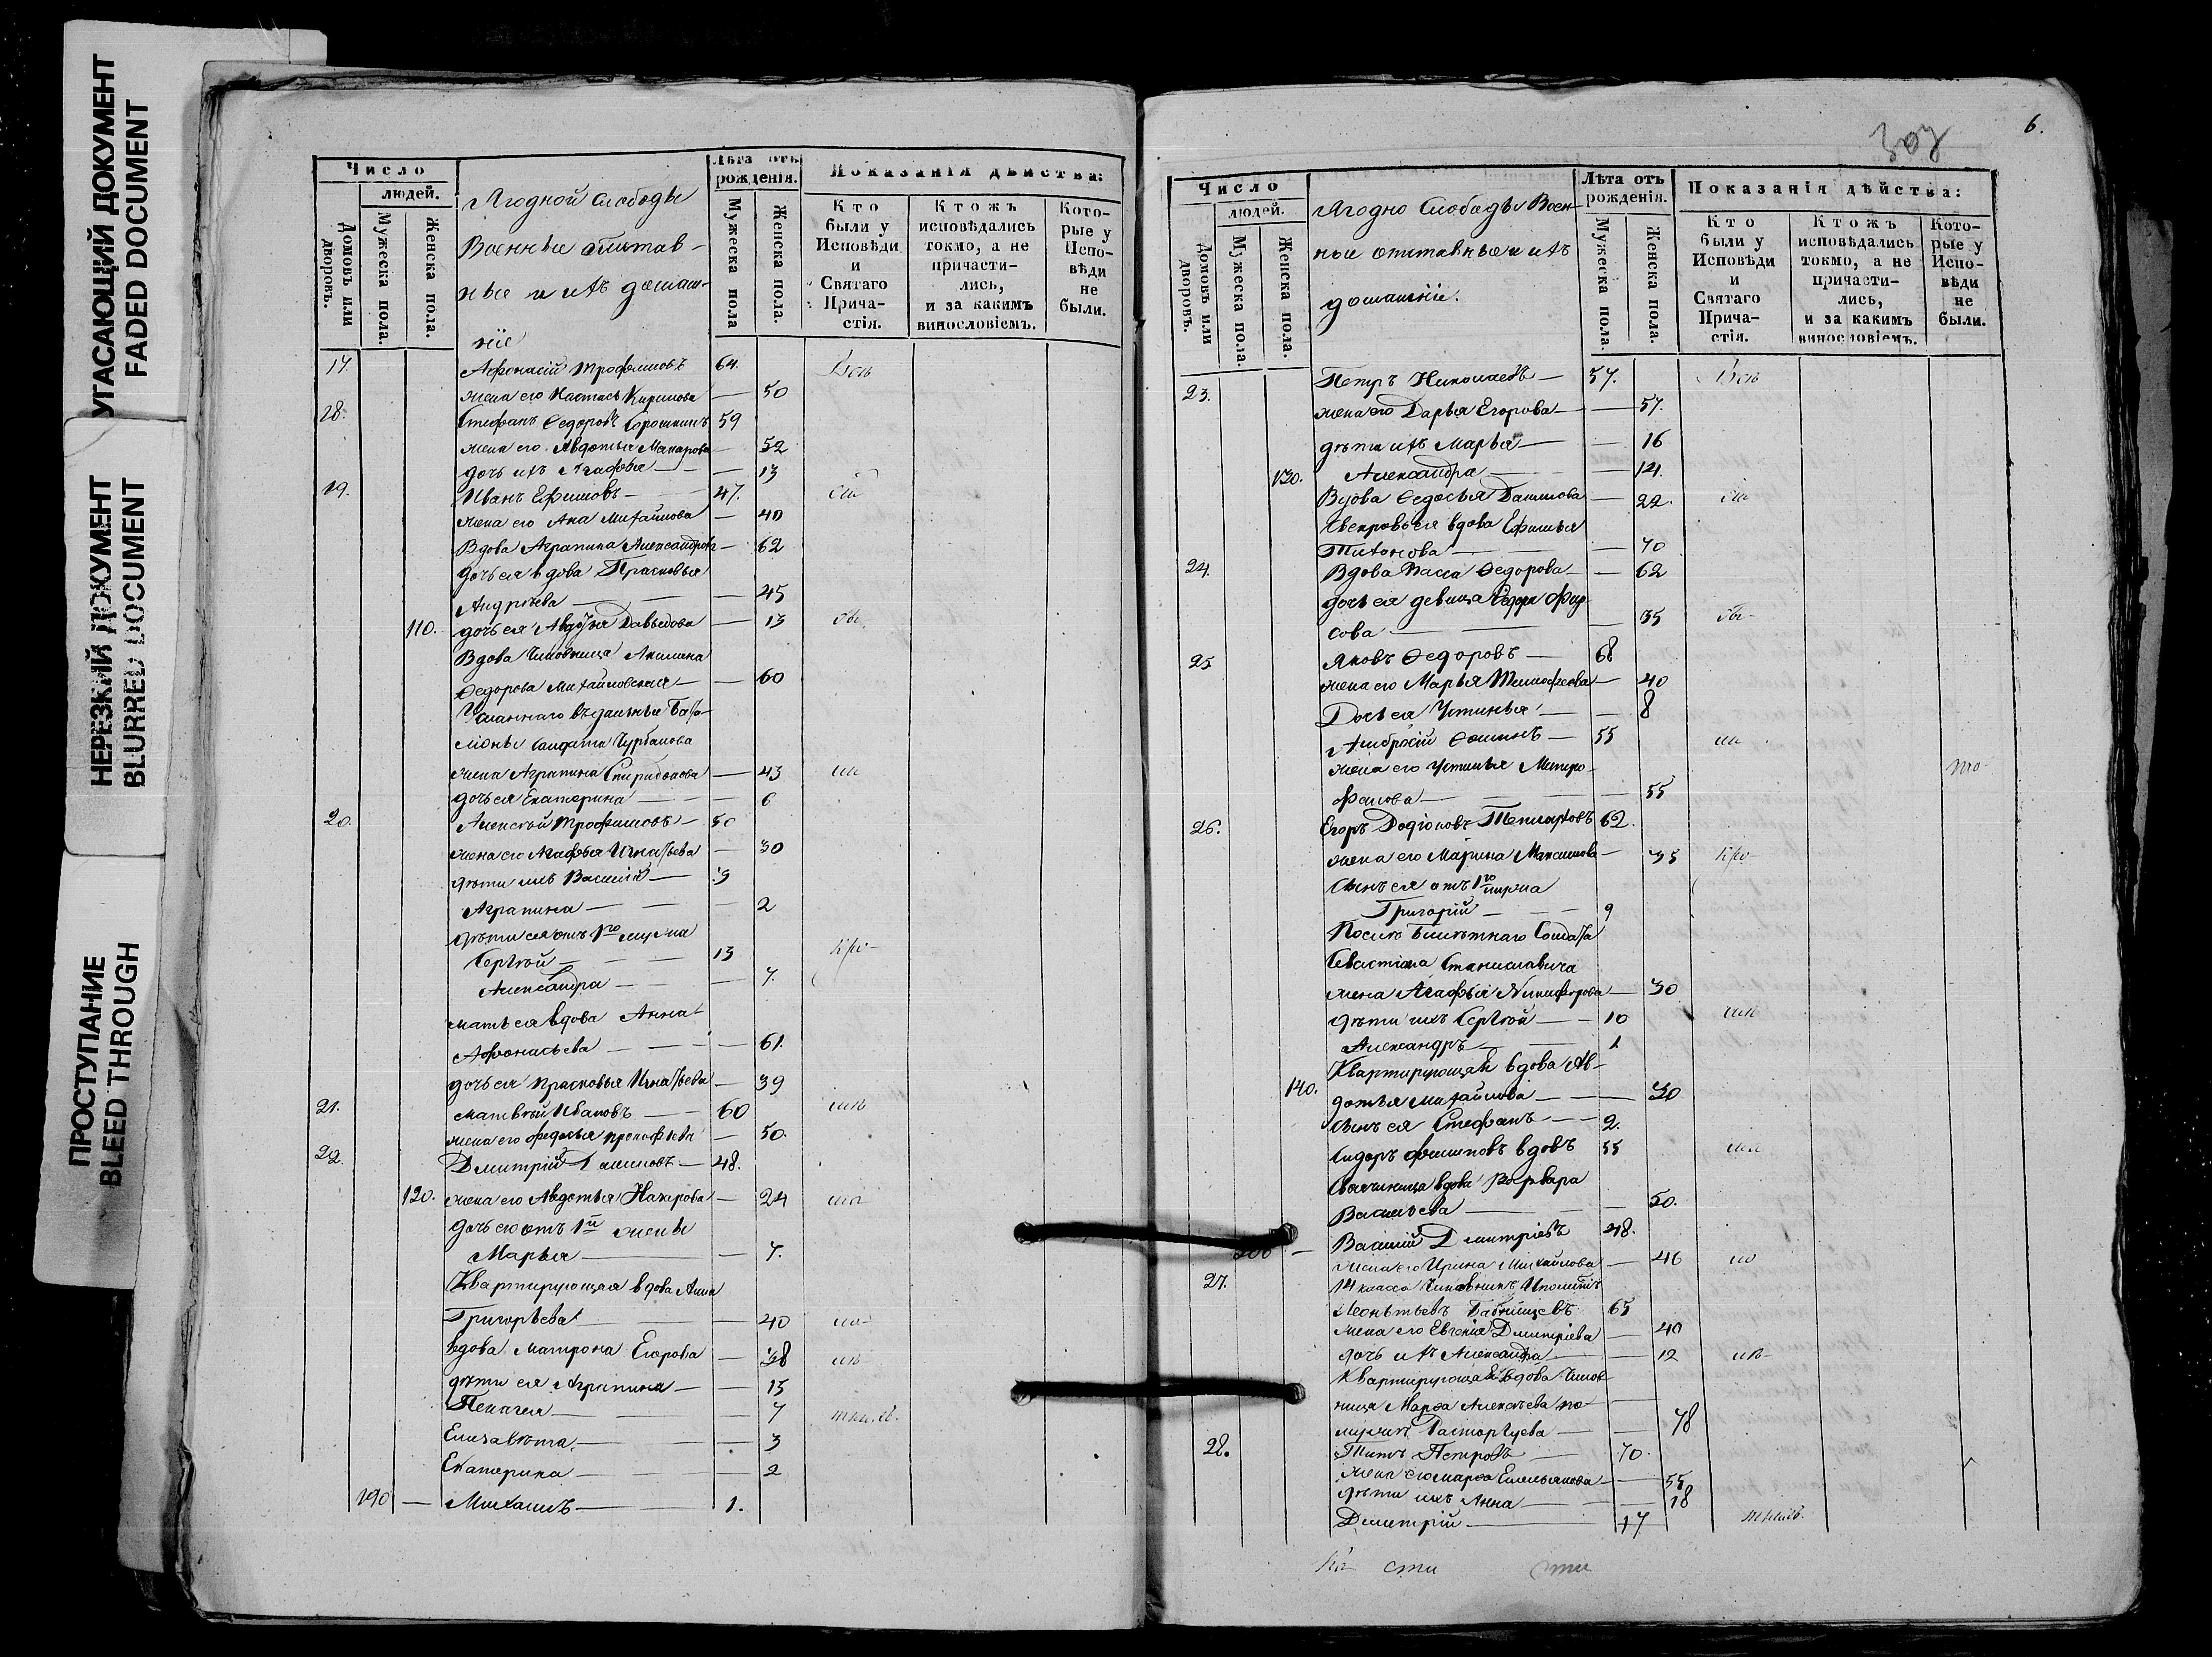 УГАСАЮЩИЙ ДОКУМЕНТ
FADED DOCUMENT
НЕРЕЗКИЙ ДОКУМЕНТ
BLURRED DOCUMENT
ПРОСТУПАНИЕ
BLEED THROUGH
Число
людей.
Домовъ или дворовъ.
Мужеска пола.
Женска пола.
Ягодной Слободы
Военные отстав-
ные и ихъ домаш-
ніе
Лѣта отъ рожденія.
Мужеска пола
Женска пола.
Показанія дѣйства:
Кто были у Исповѣди и Святаго Прича-стія.
Ктожъ исповѣдались токмо, а не причасти-лись, и за какимъ винословіемъ.
Кото-рые у Испо-вѣди не были.
17. Афонасій Трофимовъ 64.
жена его Настасья Кирилова — 50
28. Стефанъ Ѳедоровъ Сорошкинъ 59
жена его Авдотья Макарова — 52
дочь ихъ Агафья — — 13
19. Иванъ Ефимовъ — 47.
жена его Ана Михайлова — 40
Вдова Аграпина Александрова — 62
дочь ея вдова Прасковья
Андрѣева — — 45
110. дочь ея Авдотья Давыдова — 13
Вдова Чиновница Акилина
Ѳедорова Михайловская — — 60
жена Аграпина Спиридонова — 43
дочь ея Екатерина — — 6
20. Алексѣй Трофимовъ — 50
жена его Агафья Игнатьева — 30
дѣти ихъ Василій — 3
Аграпина — — 2
дѣти ея отъ 1го мужа
Сергѣй — — 13
Александра — — 7.
мать ея вдова Анна
Афонасьева — — 61.
дочь ея Прасковья Игнатьева — 39
21. Матвѣй Ивановъ — 60
жена его Федосья Прокофьева — 50.
22. Дмитрій — 48.
120. жена его Авдотья Назарова — 24
дочь его отъ 1й жены
Марья — — 7.
Квартирующая вдова Анна
Григорьева — — 40
вдова Матрона Егорова — 38
дѣти ея Аграпина — — 15
Пелагея — — 7
Елизавѣта — — 3
Екатерина — — 2
190 — Михаилъ — 1.
307
6.
Число
людей.
Домовъ или дворовъ.
Мужеска пола.
Женска пола.
Ягодно Слободы Воен-
ные отставные и ихъ
домашніе.
Лѣта отъ рожденія.
Мужеска пола.
Женска пола.
Показанія дѣйства:
Кто были у Исповѣди и Святаго Прича-стія.
Ктожъ исповѣдались токмо, а не причасти-лись, и за какимъ винословіемъ.
Кото-рые у Испо-вѣди не были.
23. Петръ Николаевъ — 57.
жена его Дарья Егорова — — 57.
дѣти ихъ Марья — — 16
130. Александра — — 14.
Вдова Ѳедосья Данилова — 22.
Свекровь ея вдова Ефимья
Тихонова — — 70
24. Вдова Васса Ѳедорова — — 62
дочь ея девица Ѳедора Фир-
сова — — 35
25 Яковъ Ѳедоровъ — 68
жена его Марья Тимофеева — 40
Дочь ея Устинья — — 8
Амбросій Ѳоминъ — 55
жена его Устинья Митро-
фанова — — 55
26. Егоръ Родіоновъ 62.
жена его Марина Максимова — 35
Сынъ ея отъ 1го мужа
Григорій — — 9
Билѣтнаго Солдата
Севастіана Станиславича
жена Агафья Никифорова — 30
дѣти ихъ Сергѣй — 10
Александръ — 1
Квартирующая вдова Ав-
140. дотья Михайлова — — 30
Сынъ ея Стефанъ — 2.
Сидоръ Филиповъ вдовъ 55
вдова Варвара
Васильева — — 50.
Василій Дмитріевъ 48.
жена его Ирина Михайлова — 46
27. 14 класса Чиновникъ Иполитъ
Леонтьевъ 65
жена его Евгенія Дмитріева — 40
дочь ихъ Александра — — 12
Квартирующая вдова Чинов-
ница Марѳа Алексѣева по
мужѣ Расторгуева — — 78
28. Титъ Петровъ — 70.
жена его Марѳа Емельянова — 55
дѣти ихъ Анна — — 18
Дмитрій — 17